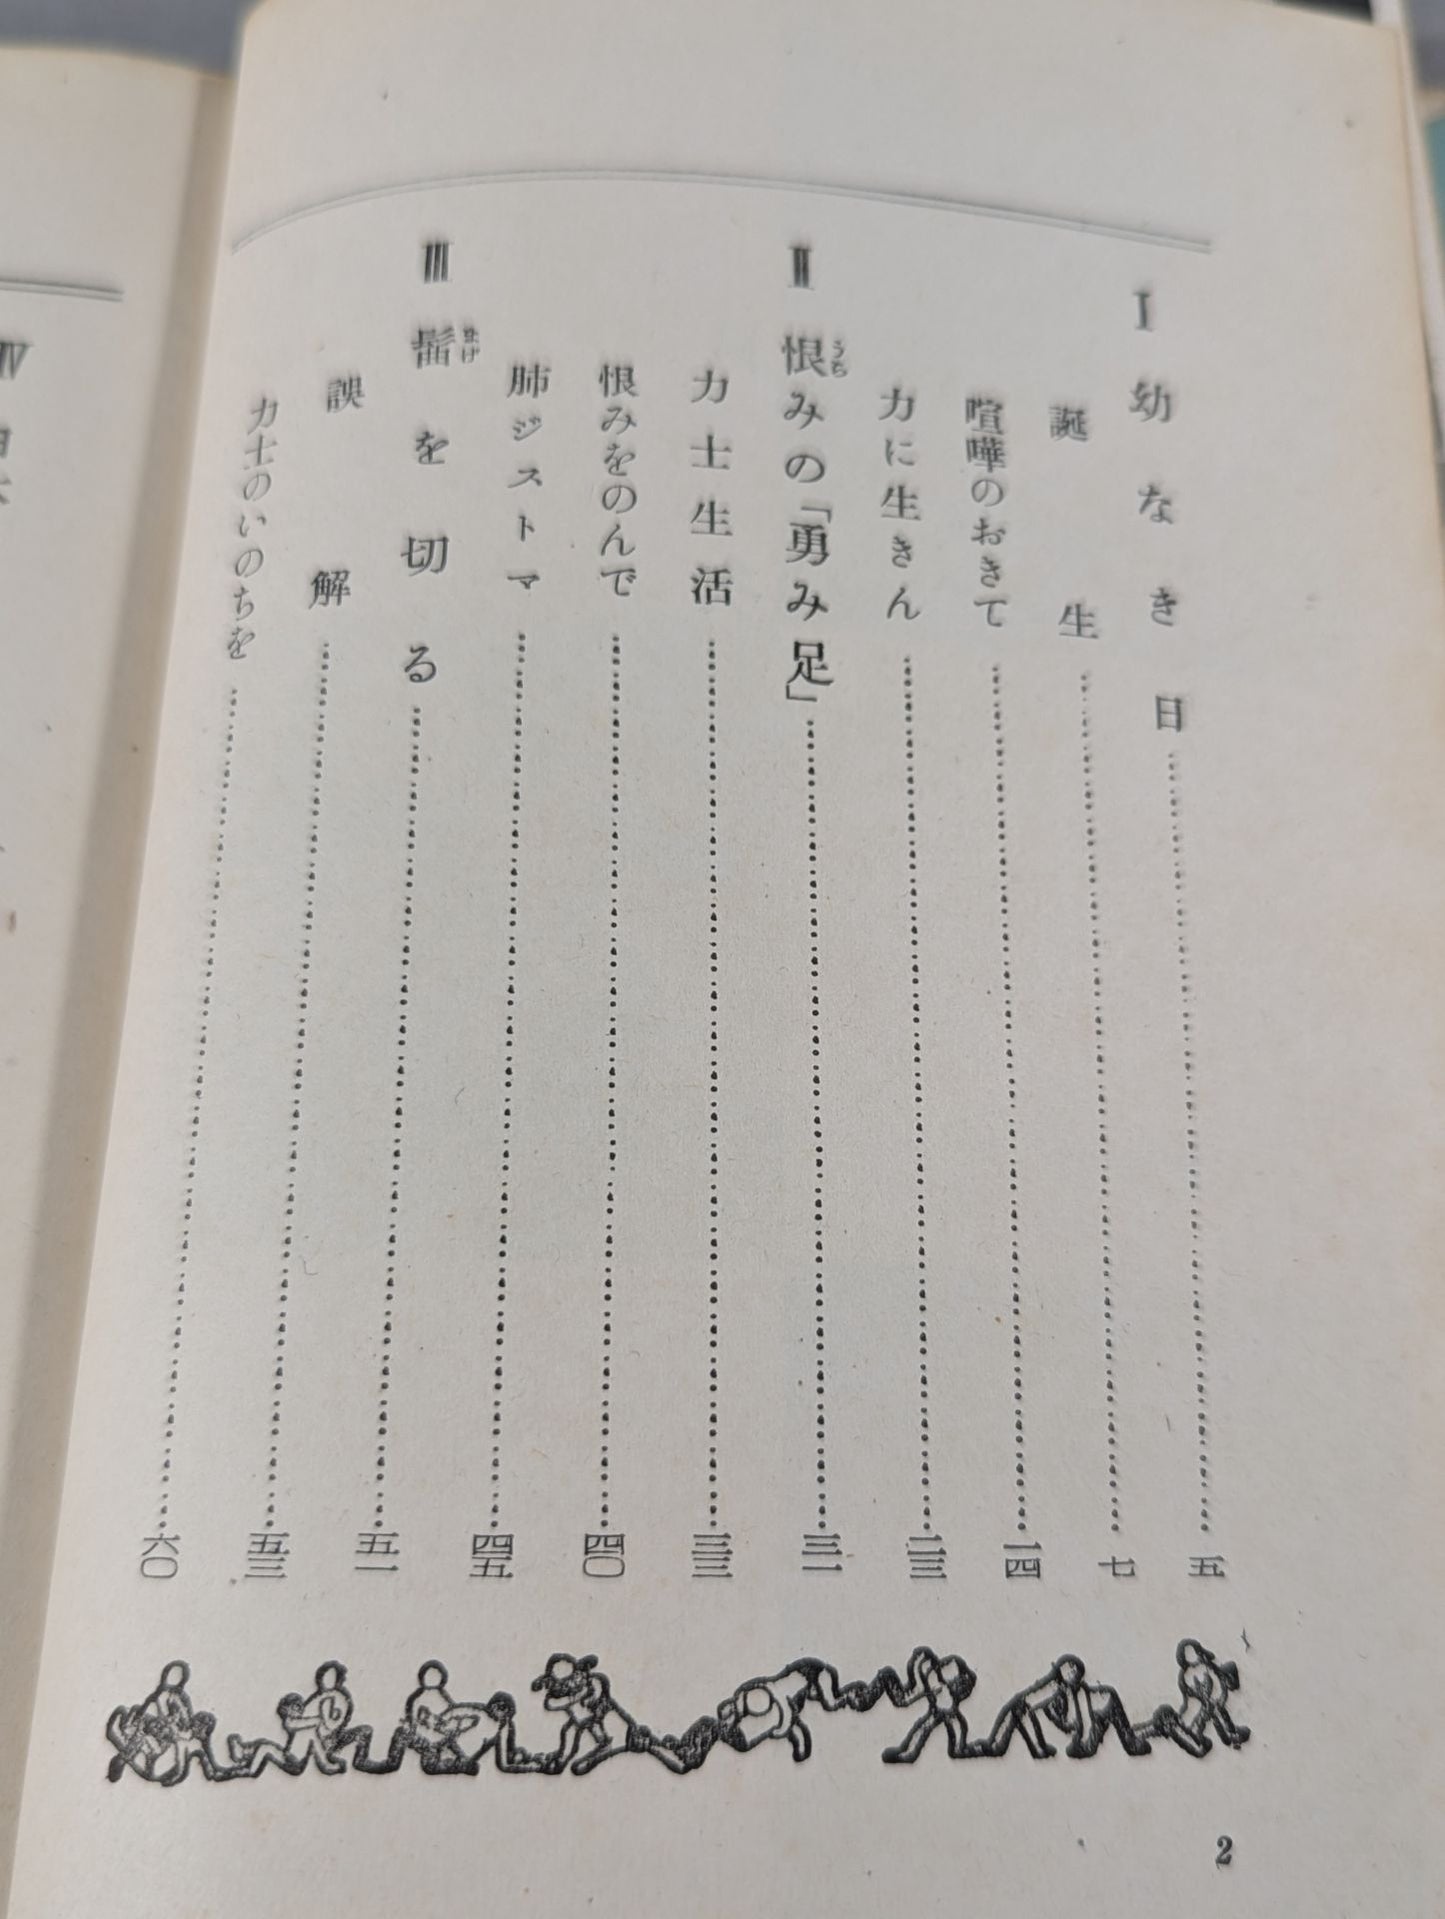 I 幼なき日……五
誕生……七
喧嘩のおきて……一四
力に生きん……二三
II 恨みの「勇み足」……三一
うち
力士生活……三三
恨みをのんで……四〇
肺ジストマ……四五
III 髷を切る……五一
まげ
誤解……五三
力士のいのちを……六〇
2
IV